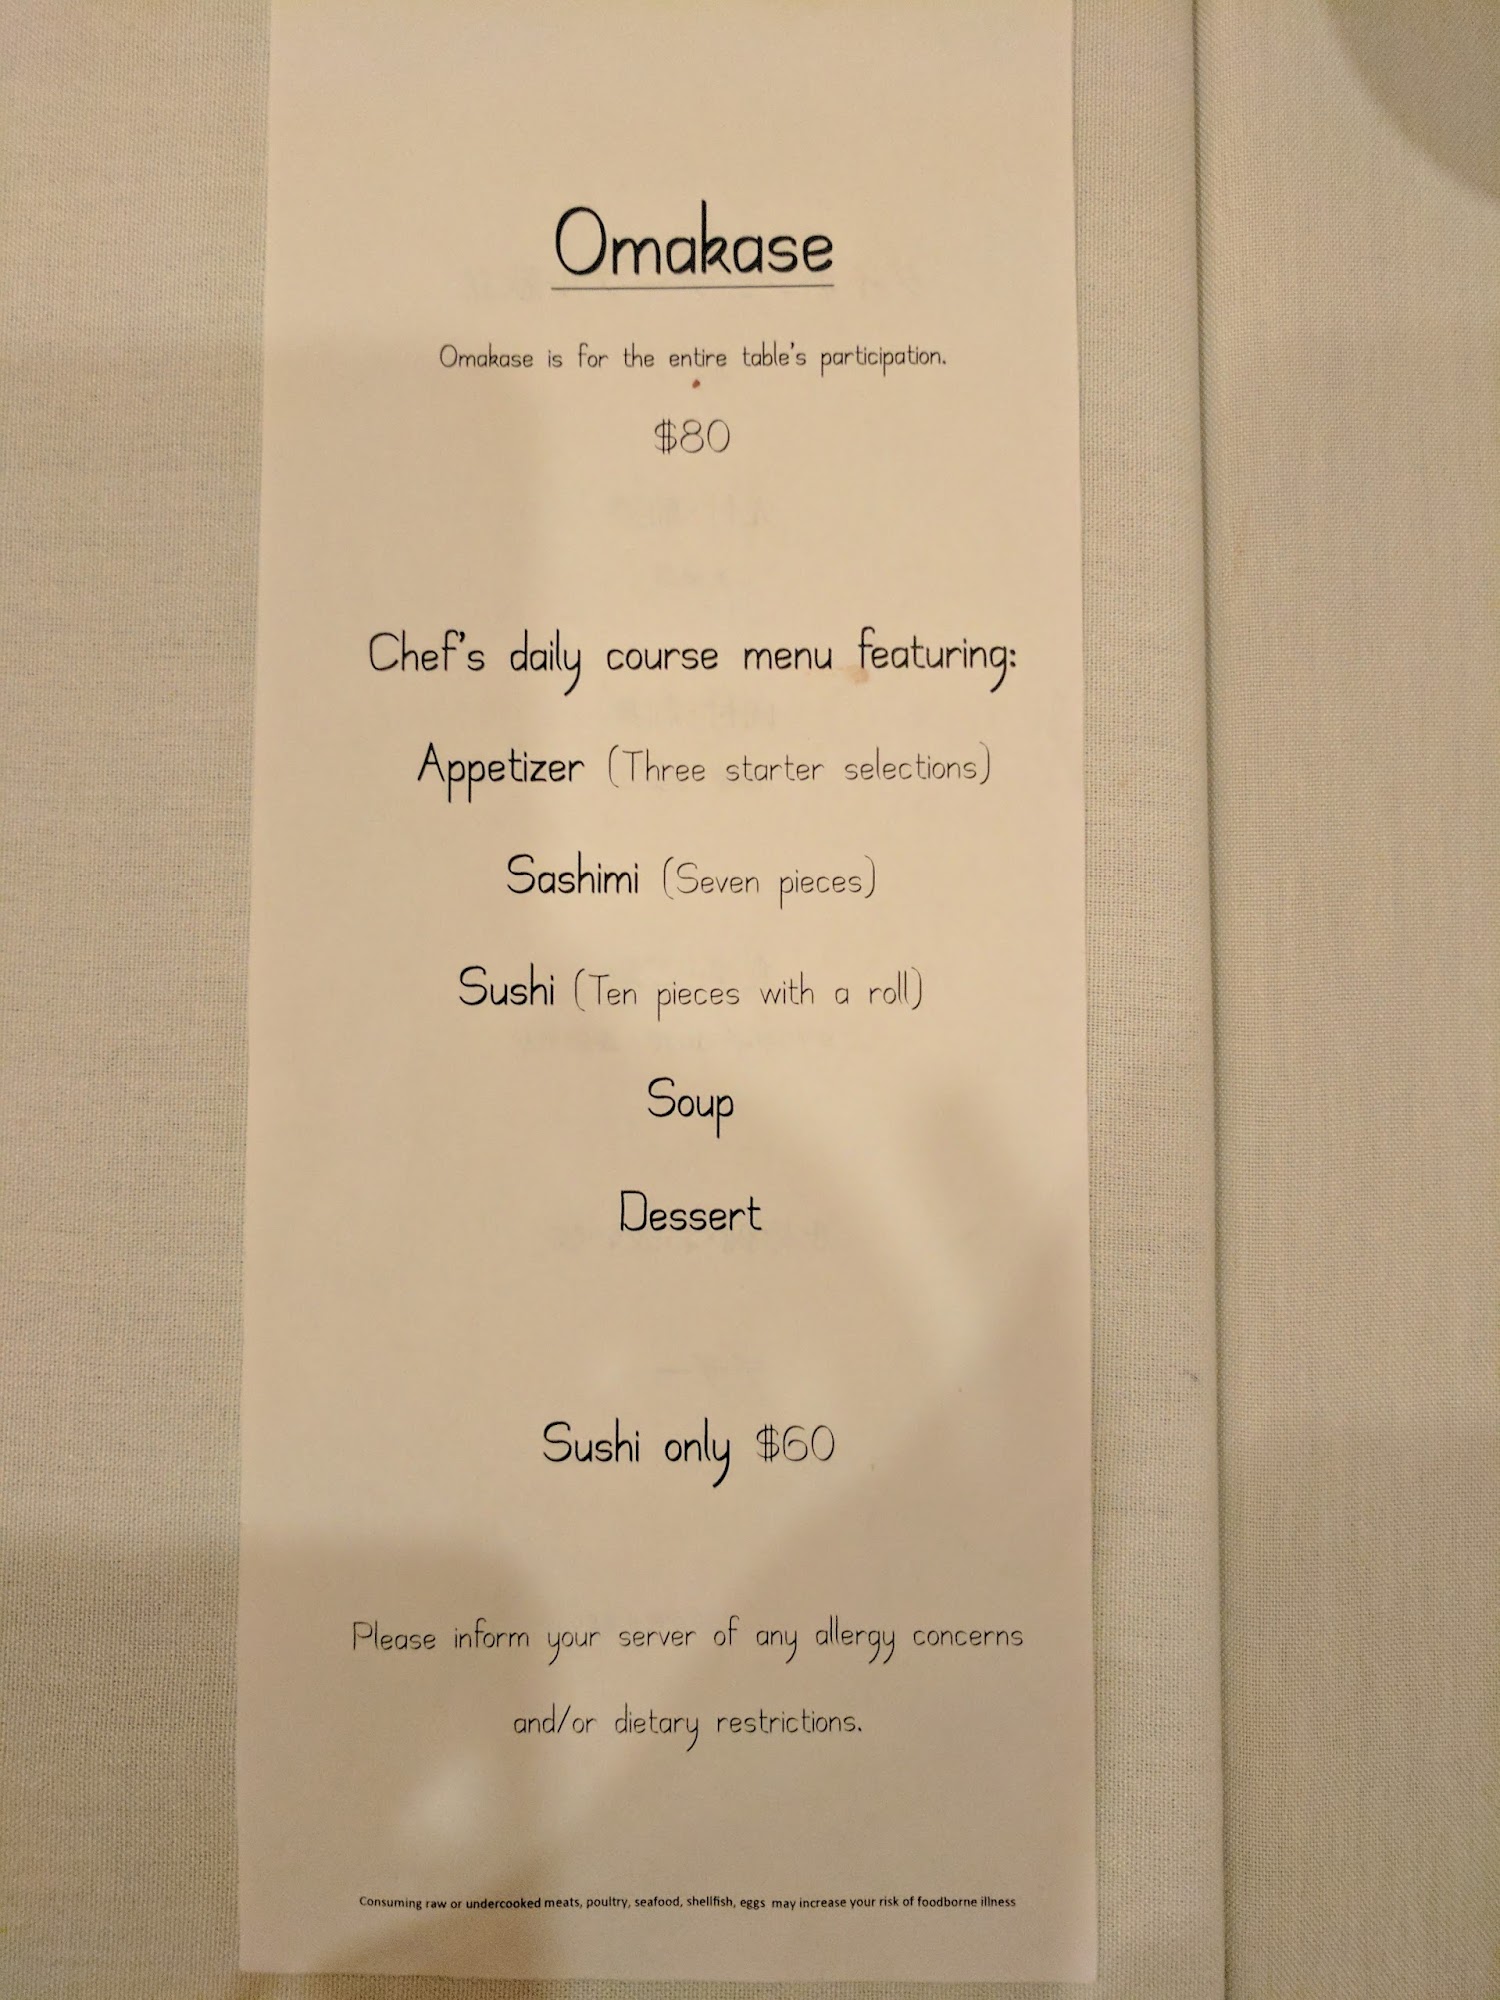 Omakase
Omakase is for the entire table's participation.
$80
Chef's daily course menu featuring:
Appetizer (Three starter selections)
Sashimi (Seven pieces)
Sushi (Ten pieces with a roll)
Soup
Dessert
Sushi only $60
Please inform your server of any allergy concerns
and/or dietary restrictions.
Consuming raw or undercooked meats, poultry, seafood, shellfish, eggs may increase your risk of foodborne illness